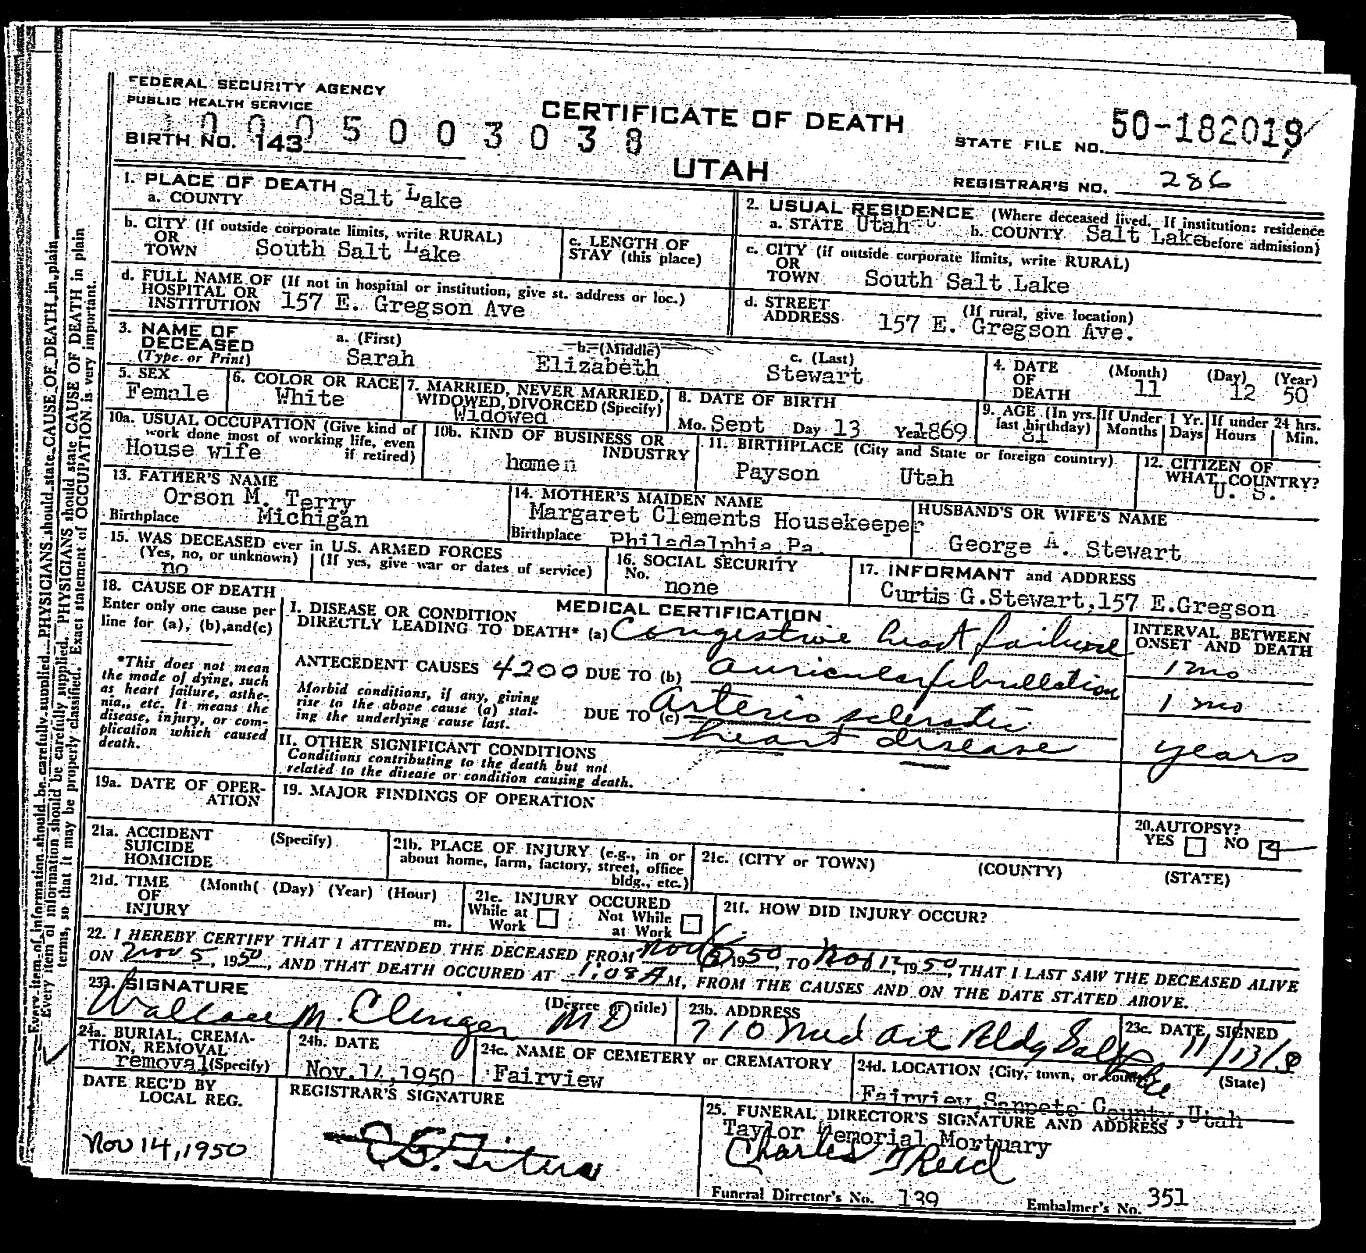 FEDERAL SECURITY AGENCY
PUBLIC HEALTH SERVICE
CERTIFICATE OF DEATH
UTAH
BIRTH NO. 143
0005003038
STATE FILE NO. 50-182019
REGISTRAR'S NO. 286
1. PLACE OF DEATH
a. COUNTY Salt Lake
b. CITY (If outside corporate limits, write RURAL)
OR
TOWN South Salt Lake
c. LENGTH OF
STAY (this place)
d. FULL NAME OF (If not in hospital or institution, give st. address or loc.)
HOSPITAL OR
INSTITUTION 157 E. Gregson Ave
2. USUAL RESIDENCE (Where deceased lived. If institution: residence
a. STATE Utah b. COUNTY Salt Lake before admission)
c. CITY (if outside corporate limits, write RURAL)
OR
TOWN South Salt Lake
d. STREET (If rural, give location)
ADDRESS 157 E. Gregson Ave.
3. NAME OF
DECEASED
(Type or Print)
a. (First) b. (Middle) c. (Last)
Sarah Elizabeth Stewart
4. DATE
OF
DEATH
(Month) (Day) (Year)
11 12 50
5. SEX
Female
6. COLOR OR RACE
White
7. MARRIED, NEVER MARRIED,
WIDOWED, DIVORCED (Specify)
Widowed
8. DATE OF BIRTH
Mo. Sept Day 13 Year 1869
9. AGE (In yrs.
last birthday)
81
If Under 1 Yr.
Months Days
If under 24 hrs.
Hours Min.
10a. USUAL OCCUPATION (Give kind of
work done most of working life, even
House wife if retired)
10b. KIND OF BUSINESS OR
INDUSTRY
homen
11. BIRTHPLACE (City and State or foreign country)
Payson Utah
12. CITIZEN OF
WHAT COUNTRY?
U. S.
13. FATHER'S NAME
Orson M. Terry
Birthplace Michigan
14. MOTHER'S MAIDEN NAME
Margaret Clements Housekeeper
Birthplace Philadelphia Pa.
HUSBAND'S OR WIFE'S NAME
George A. Stewart
15. WAS DECEASED ever in U.S. ARMED FORCES
(Yes, no, or unknown) (If yes, give war or dates of service)
no
16. SOCIAL SECURITY
No.
none
17. INFORMANT and ADDRESS
Curtis G.Stewart,157 E.Gregson
18. CAUSE OF DEATH
Enter only one cause per
line for (a), (b),and(c)
*This does not mean
the mode of dying, such
as heart failure, asthe-
nia, etc. It means the
disease, injury, or com-
plication which caused
death.
MEDICAL CERTIFICATION
I. DISEASE OR CONDITION
DIRECTLY LEADING TO DEATH* (a) Congestive heart failure
ANTECEDENT CAUSES 4200 DUE TO (b) auricular fibrillation
Morbid conditions, if any, giving
rise to the above cause (a) stat-
ing the underlying cause last.
DUE TO (c) Arterio sclerotic
heart disease
INTERVAL BETWEEN
ONSET AND DEATH
1 mo
1 mo
years
II. OTHER SIGNIFICANT CONDITIONS
Conditions contributing to the death but not
related to the disease or condition causing death.
19a. DATE OF OPER-
ATION
19. MAJOR FINDINGS OF OPERATION
20. AUTOPSY?
YES NO
21a. ACCIDENT (Specify)
SUICIDE
HOMICIDE
21b. PLACE OF INJURY (e.g., in or
about home, farm, factory, street, office
bldg., etc.)
21c. (CITY or TOWN) (COUNTY) (STATE)
21d. TIME (Month( (Day) (Year) (Hour)
OF
INJURY m.
21e. INJURY OCCURED
While at Not While
Work at Work
21f. HOW DID INJURY OCCUR?
22. I HEREBY CERTIFY THAT I ATTENDED THE DECEASED FROM Nov 1950, TO Nov 12, 1950, THAT I LAST SAW THE DECEASED ALIVE
ON Nov 5, 1950, AND THAT DEATH OCCURED AT 1:08A M, FROM THE CAUSES AND ON THE DATE STATED ABOVE.
23a. SIGNATURE (Degree or title)
Wallace M. Clinger MD
23b. ADDRESS
710 Med Art Bldg Salt Lake
23c. DATE SIGNED
11/13/50
24a. BURIAL, CREMA-
TION, REMOVAL
removal (Specify)
24b. DATE
Nov.14,1950
24c. NAME OF CEMETERY or CREMATORY
Fairview
24d. LOCATION (City, town, or county) (State)
Fairview Sanpete County, Utah
DATE REC'D BY
LOCAL REG.
Nov 14, 1950
REGISTRAR'S SIGNATURE
25. FUNERAL DIRECTOR'S SIGNATURE AND ADDRESS
Taylor Memorial Mortuary
Charles Reid
Funeral Director's No. 139
Embalmer's No. 351
Every item of information should be carefully supplied. PHYSICIANS should state CAUSE OF DEATH in plain
Every item of information should be carefully supplied. PHYSICIANS should state CAUSE OF DEATH in plain
terms, so that it may be properly classified. Exact statement of OCCUPATION is very important.